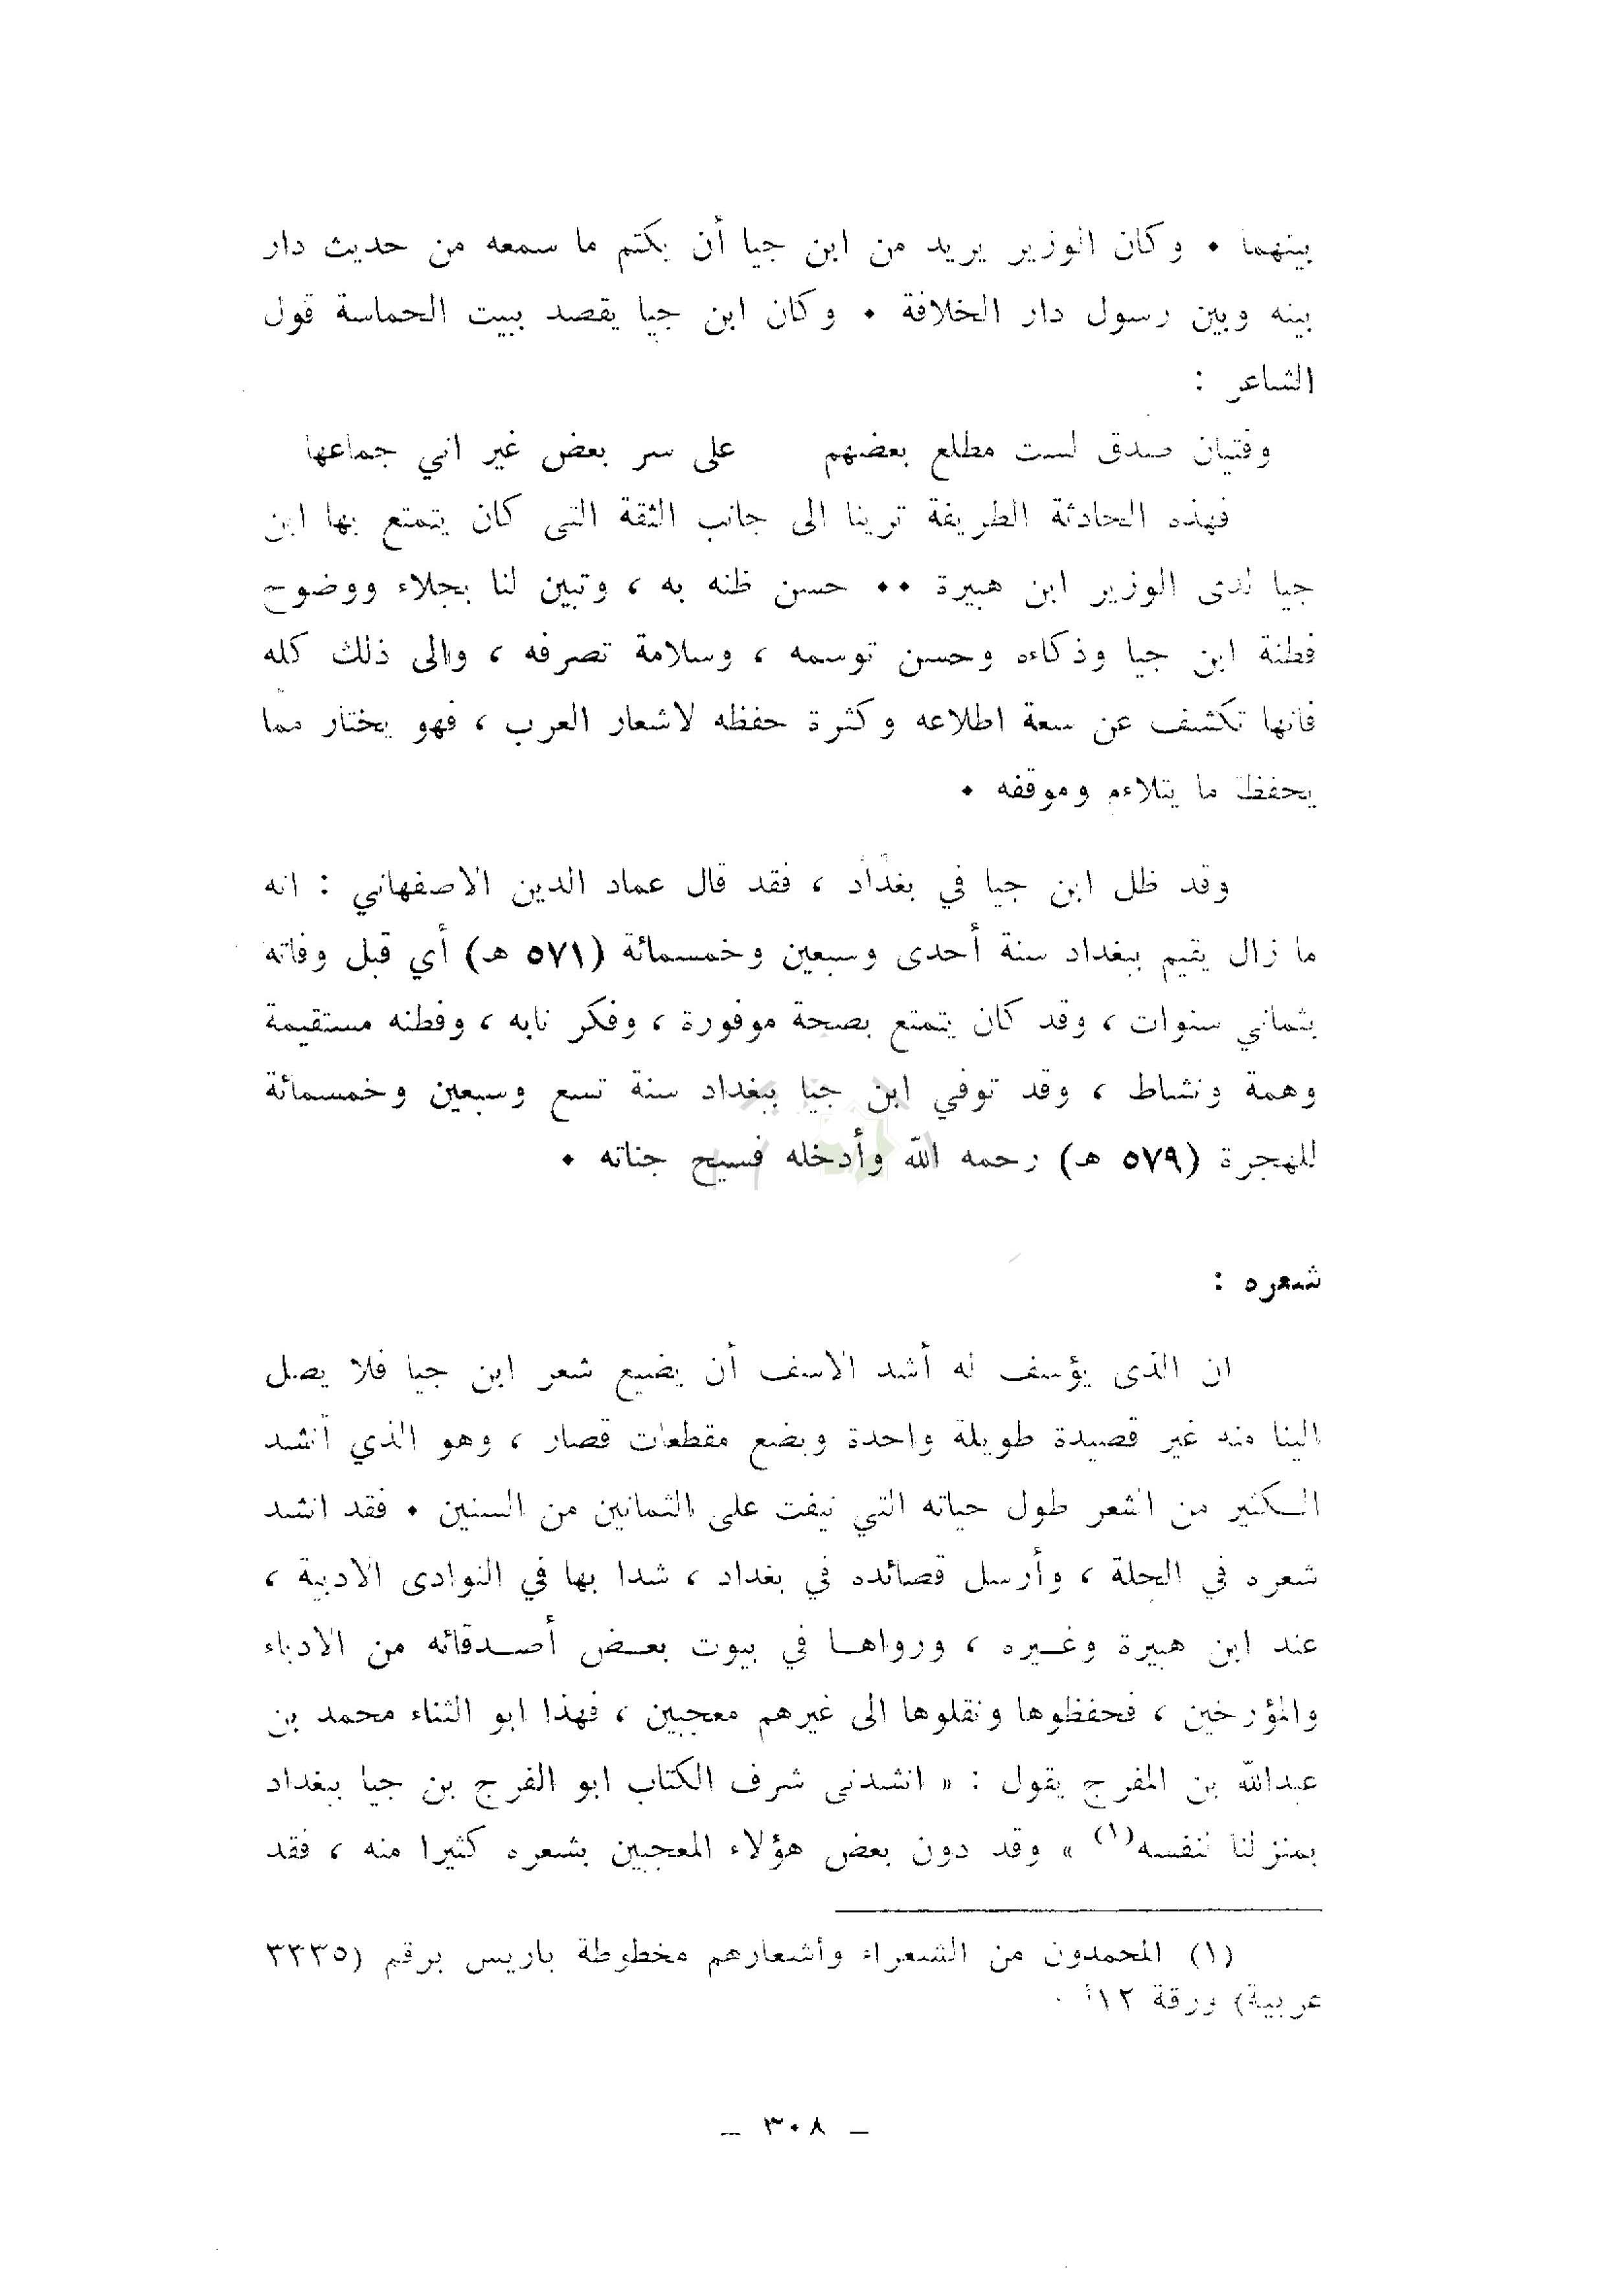 بينهما • وكان الوزير يريد من ابن جيا أن يكتم ما سمعه من حديث دار
بينه وبين رسول دار الخلافة • وكان ابن جيا يقصد ببيت الحماسة قول
الشاعر :
وفتيان صدق لست مطلع بعضهم على سر بعض غير اني جماعها
فهذه الحادثة الطريفة ترينا الى جانب الثقة التى كان يتمتع بها ابن
جيا لدى الوزير ابن هبيرة •• حسن ظنه به ، وتبين لنا بجلاء ووضوح
فطنة ابن جيا وذكاءه وحسن توسمه ، وسلامة تصرفه ، والى ذلك كله
فانها تكشف عن سعة اطلاعه وكثرة حفظه لاشعار العرب ، فهو يختار مما
يحفظ ما يتلاءم وموقفه •
وقد ظل ابن جيا في بغداد ، فقد قال عماد الدين الاصفهاني : انه
ما زال يقيم ببغداد سنة أحدى وسبعين وخمسمائة (٥٧١ هـ) أي قبل وفاته
بثماني سنوات ، وقد كان يتمتع بصحة موفورة ، وفكر نابه ، وفطنه مستقيمة
وهمة ونشاط ، وقد توفي ابن جيا ببغداد سنة تسع وسبعين وخمسمائة
للهجرة (٥٧٩ هـ) رحمه الله وأدخله فسيح جناته •
شعره :
ان الذى يؤسف له أشد الاسف أن يضيع شعر ابن جيا فلا يصل
الينا منه غير قصيدة طويلة واحدة وبضع مقطعات قصار ، وهو الذي أنشد
الـكثير من الشعر طول حياته التي نيفت على الثمانين من السنين • فقد انشد
شعره في الحلة ، وأرسل قصائده في بغداد ، شدا بها في النوادى الادبية ،
عند ابن هبيرة وغـيره ، ورواهـا في بيوت بعـض أصـدقائه من الادباء
والمؤرخين ، فحفظوها ونقلوها الى غيرهم معجبين ، فهذا ابو الثناء محمد بن
عبدالله بن المفرج يقول : « انشدنى شرف الكتاب ابو الفرج بن جيا ببغداد
بمنزلنا لنفسه(١) » وقد دون بعض هؤلاء المعجبين بشعره كثيرا منه ، فقد
(١) المحمدون من الشعراء وأشعارهم مخطوطة باريس برقم (٣٣٣٥
عربية) ورقة ١٢أ .
_ ٣٠٨ _